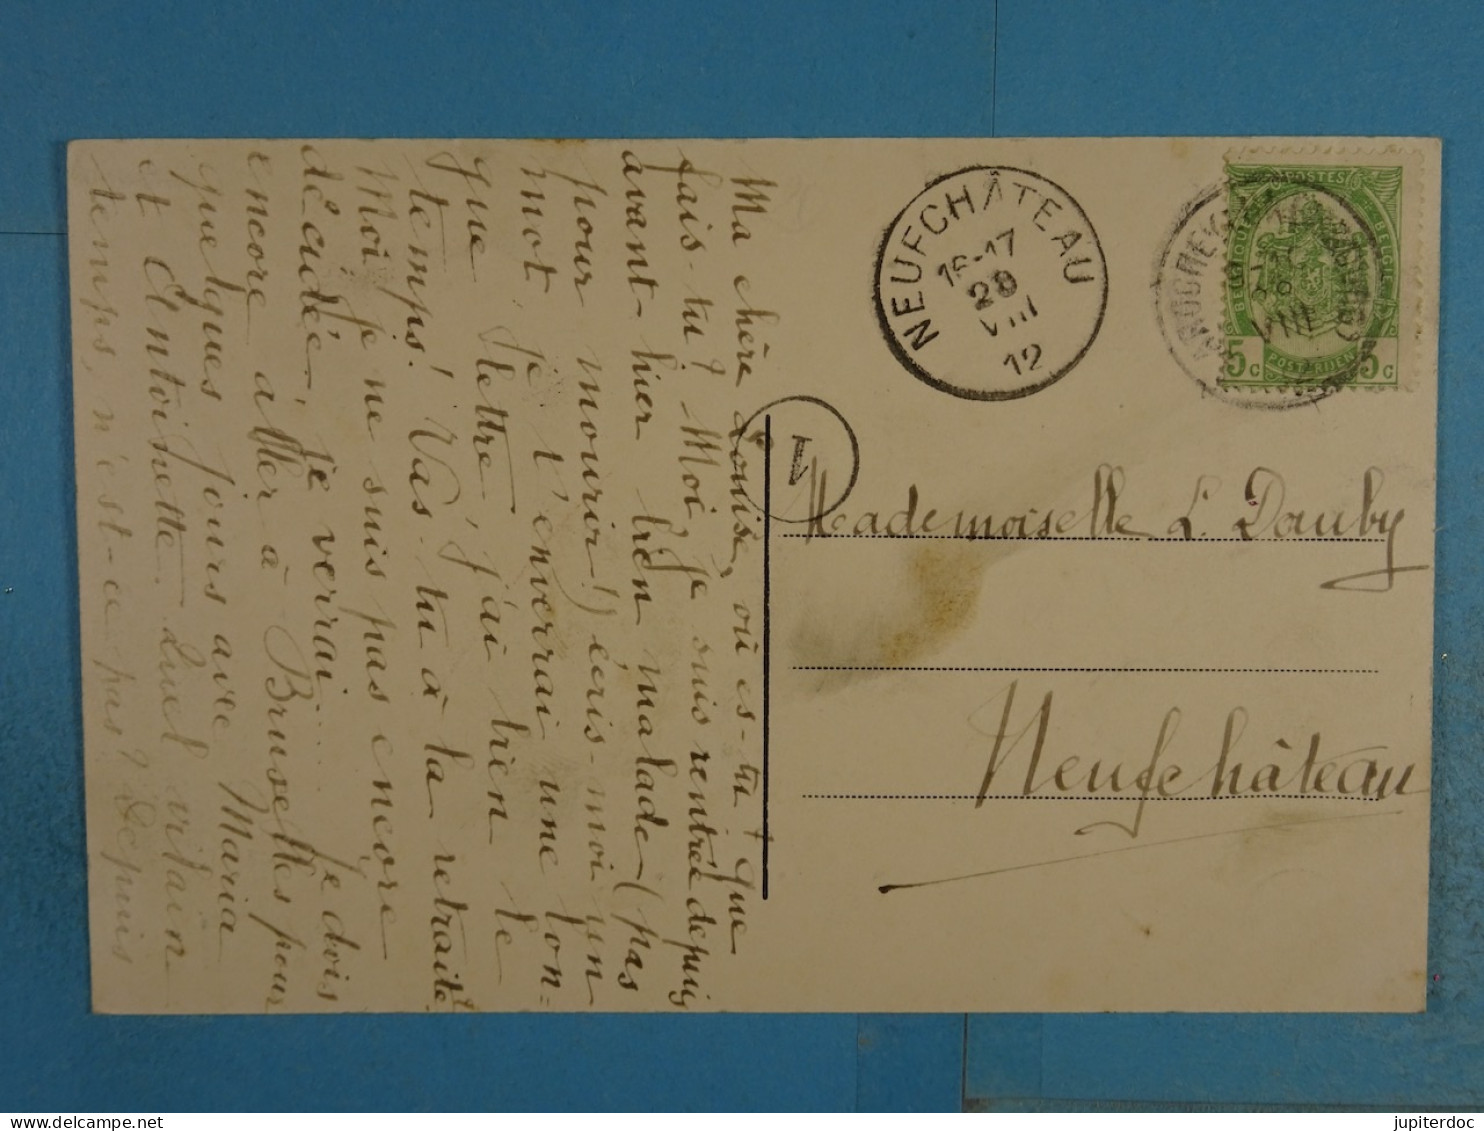 Ma chère Louise, où es-tu? Que
fais-tu? Moi, je suis rentrée depuis
avant-hier bien malade (pas
pour mourir!) écris-moi un
mot, je t'enverrai une lon=
gue lettre, j'ai bien le
temps! Vas-tu à la retraite
Moi je ne suis pas encore
décidée, je verrai... Je dois
encore aller à Bruxelles pour
quelques jours avec Maria
et Antoinette. Quel vilain
temps, n'est-ce pas? Depuis
NEUFCHÂTEAU
16-17
28
VIII
12
1
POSTES
POSTERIJEN
5c 5c
VIII
Mademoiselle L. Dauby
Neufchâteau
jupiterdoc
www.delcampe.net